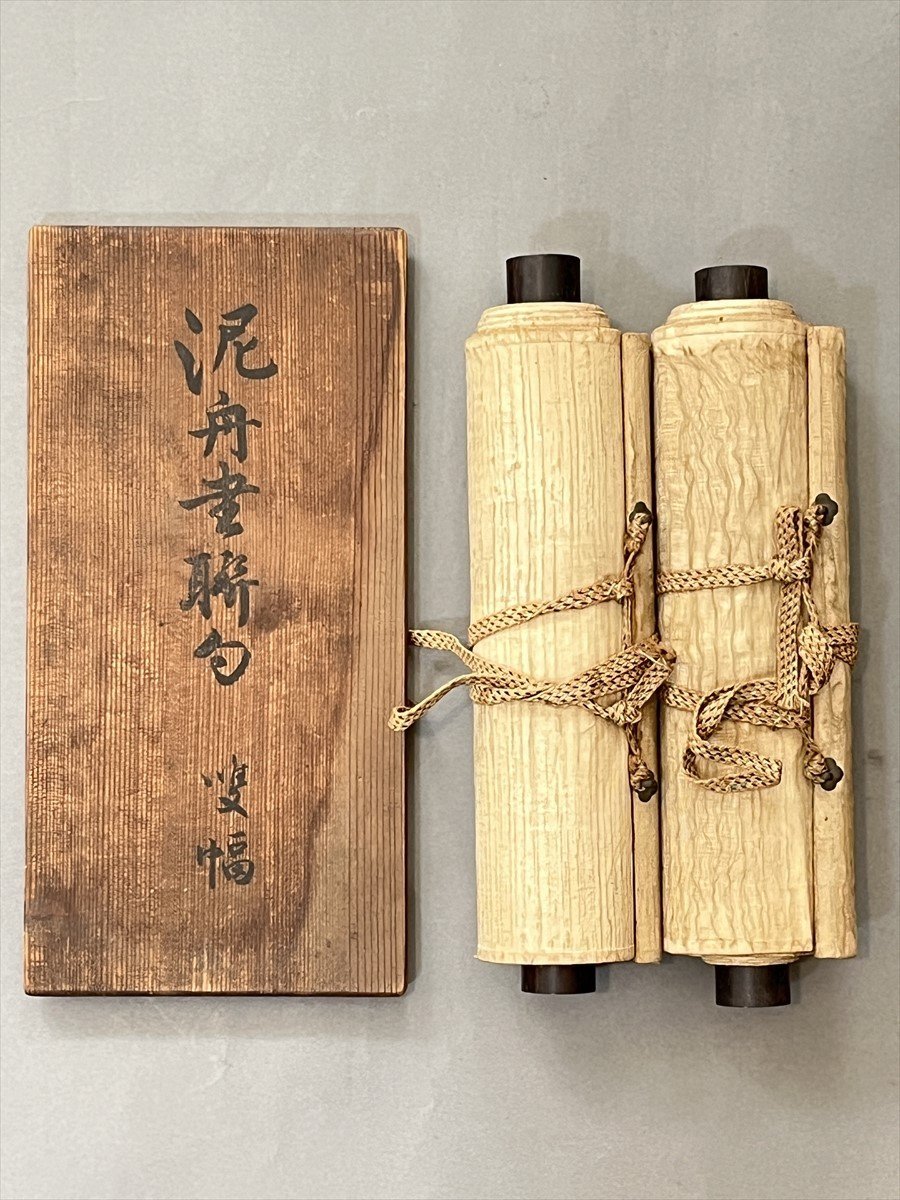 泥舟書聯句 雙幅